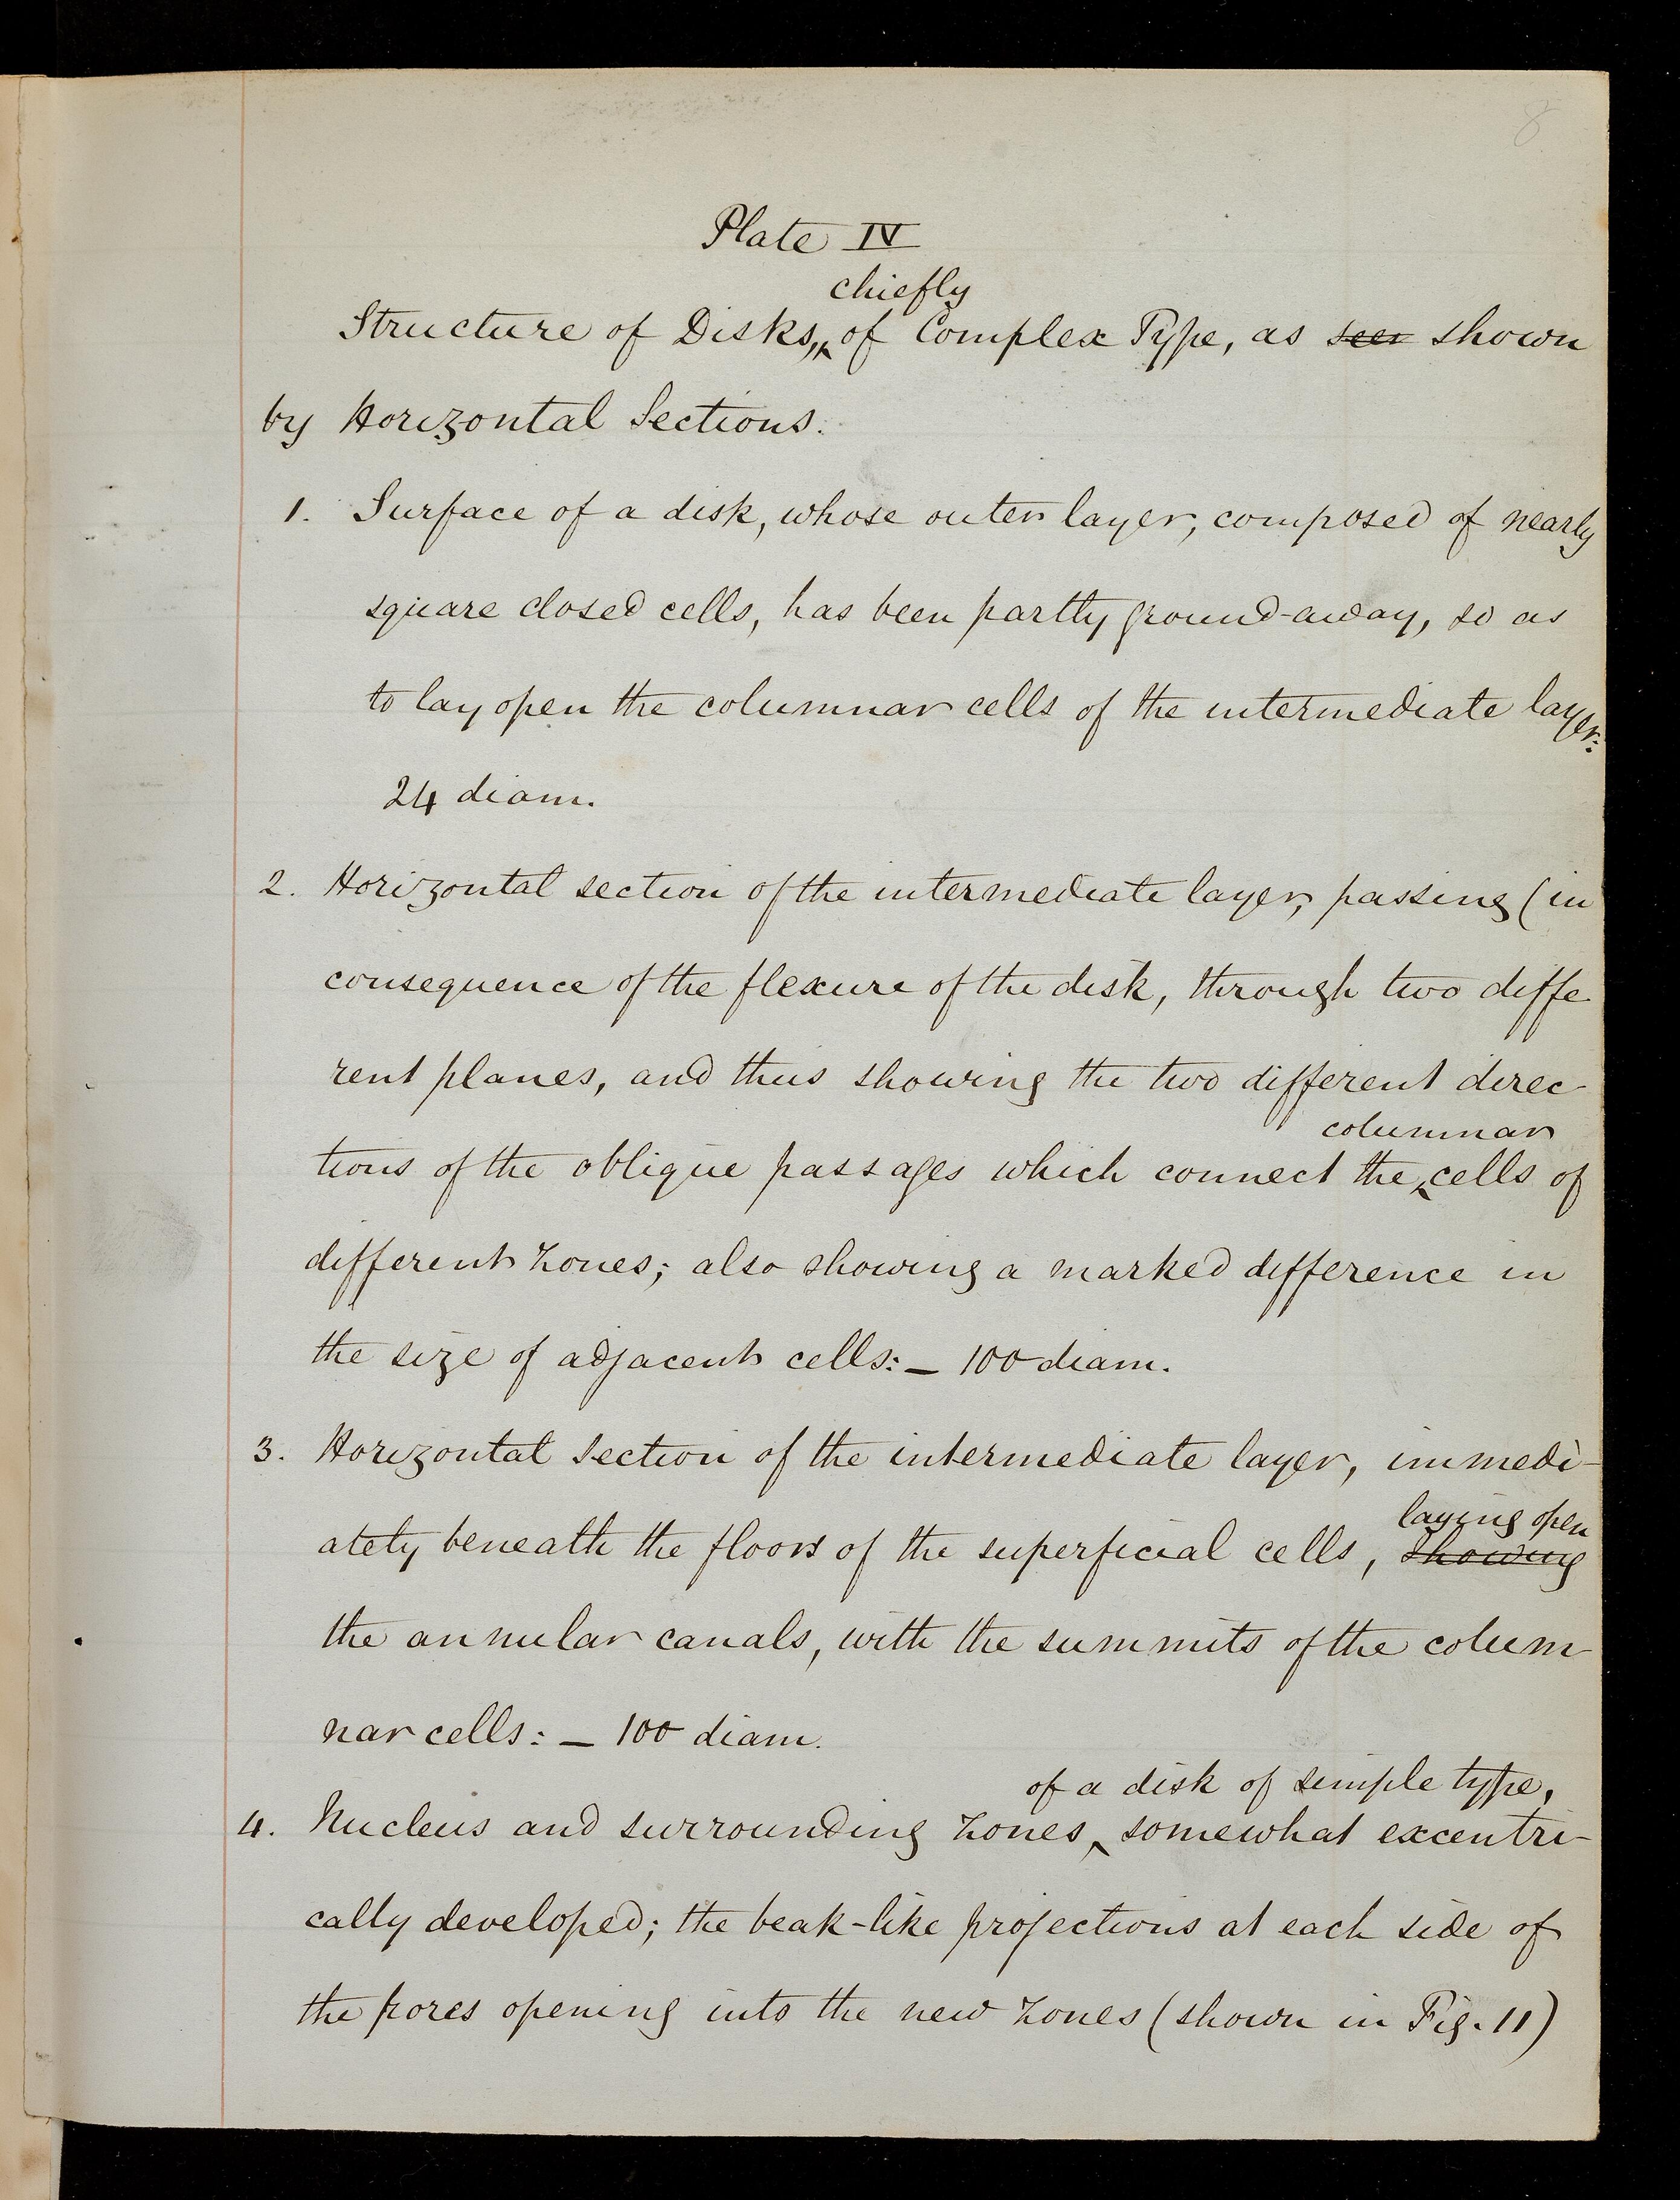 8
Plate IV
chiefly
Structure of Disks, of Complex Type, as seen shown
by Horizontal Sections.
1. Surface of a disk, whose outer layer, composed of nearly
square closed cells, has been partly ground-away, so as
to lay open the columnar cells of the intermediate layer:
24 diam.
2. Horizontal section of the intermediate layer, passing (in
consequence of the flexure of the disk, through two diffe-
rent planes, and thus showing the two different direc-
columnar
tions of the oblique passages which connect the cells of
different zones; also showing a marked difference in
the size of adjacent cells:_ 100 diam.
3. Horizontal section of the intermediate layer, immedi-
laying open
ately beneath the floors of the superficial cells, showing
the annular canals, with the summits of the colum-
nar cells:_ 100 diam.
of a disk of simple type,
4. Nucleus and surrounding zones, somewhat excentri-
cally developed; the beak-like projections at each side of
the pores opening into the new zones (shown in Fig. 11)